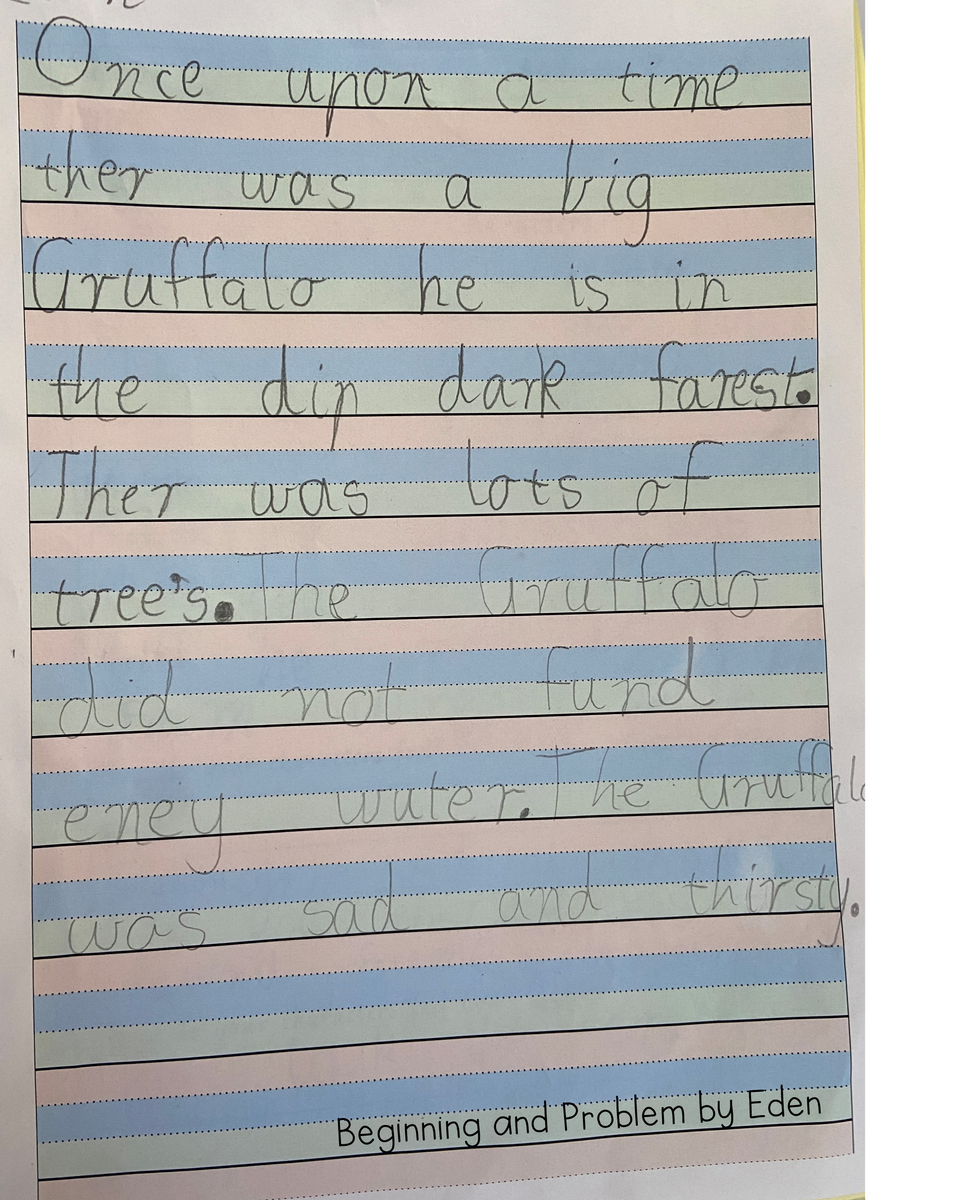 Once upon a time
ther was a big
Gruffalo he is in
the dip dark farest.
Ther was lots of
tree's. The Gruffalo
did not fund
eney water. The Gruffalo
was sad and thirsty.
Beginning and Problem by Eden